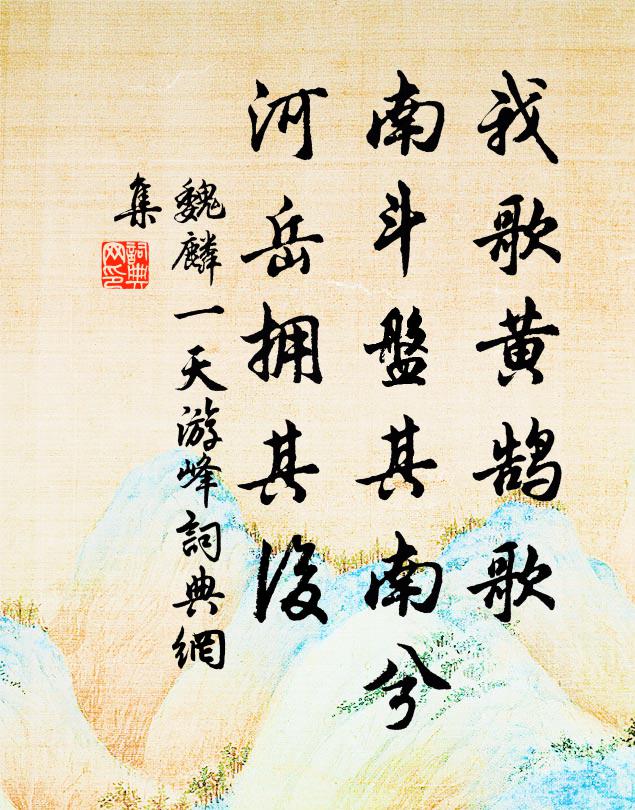 我歌黄鹄歌
南斗盤其南兮
河岳拥其後
魏麟一天游峰詞典網
集
詞典网印